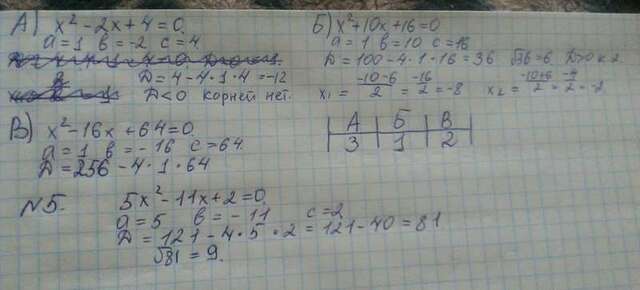 А) x² - 2x + 4 = 0.
a = 1 b = -2 c = 4
D = 4 - 4 · 1 · 4 = -12
D < 0 корней нет.
Б) x² + 10x + 16 = 0
a = 1 b = 10 c = 16
D = 100 - 4 · 1 · 16 = 36 √36 = 6 D>0 к 2
x₁ = -10-6/2 = -16/2 = -8 x₂ = -10+6/2 = -4/2 = -2
В) x² - 16x + 64 = 0.
a = 1 b = -16 c = 64.
D = 256 - 4 · 1 · 64
А Б В
3 1 2
N5. 5x² - 11x + 2 = 0
a = 5 b = -11 c = 2
D = 121 - 4 · 5 · 2 = 121 - 40 = 81
√81 = 9.